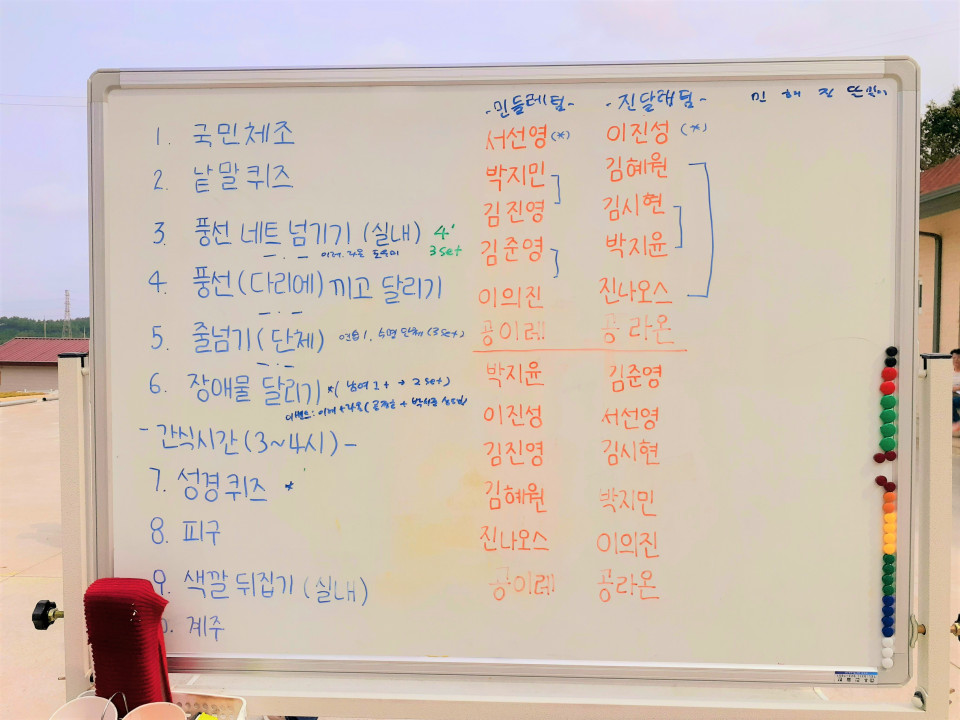 1. 국민체조
2. 낱말퀴즈
3. 풍선 네트 넘기기 (실내) 4' 3set
4. 풍선(다리에) 끼고 달리기
5. 줄넘기(단체) 연습1, 5명 단체 (3set)
6. 장애물 달리기 *( 남여 2+ → 2set)
- 간식시간(3~4시) -
7. 성경퀴즈 *
8. 피구
9. 색깔 뒤집기 (실내)
계주
-민들레팀-
서선영 (*)
박지민
김진영
김준영
이의진
공이레
박지윤
이진성
김진영
김혜원
진나오스
공이레
-진달래팀-
이진성 (*)
김혜원
김시현
박지윤
진나오스
공라온
김준영
서선영
김시현
박지민
이의진
공라온
민 해 진